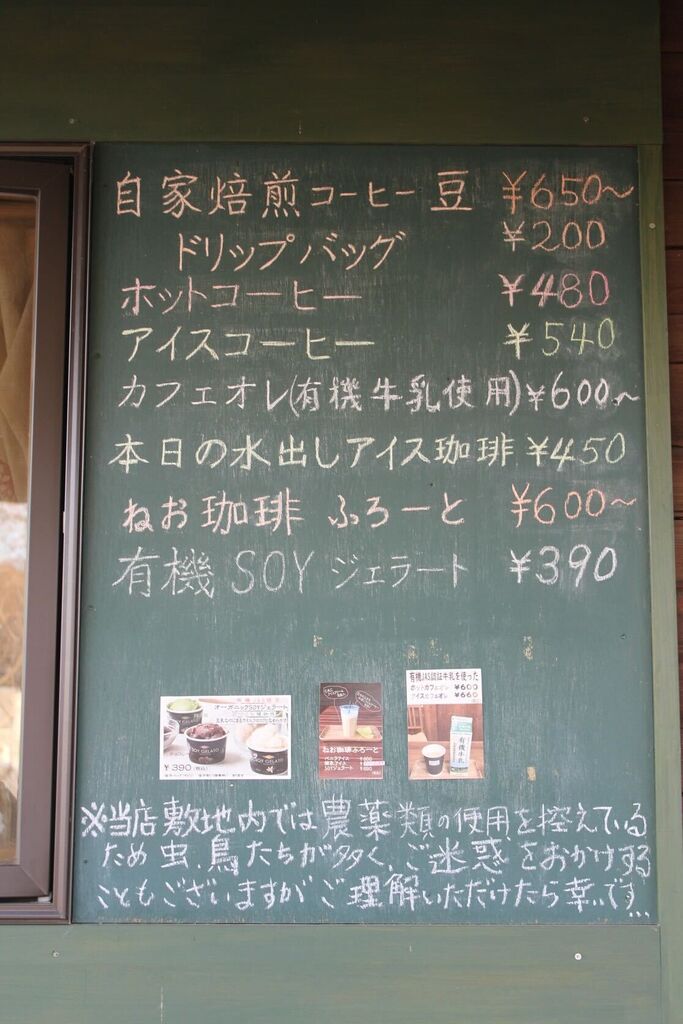 自家焙煎コーヒー豆 ¥650~
ドリップバッグ ¥200
ホットコーヒー ¥480
アイスコーヒー ¥540
カフェオレ(有機牛乳使用)¥600~
本日の水出しアイス珈琲 ¥450
ねお珈琲 ふろーと ¥600~
有機SOYジェラート ¥390
オーガニックSOYジェラート
SOY GELATO
SOY GELATO
¥390(税込)
ねお珈琲ふろーと
バニラアイス ¥600
SOYジェラート
有機JAS認証牛乳を使った
ホットカフェオレ ¥600
アイスカフェオレ ¥660
有機牛乳
※当店敷地内では農薬類の使用を控えている
ため虫、鳥たちが多く、ご迷惑をおかけする
こともございますがご理解いただけたら幸いです...